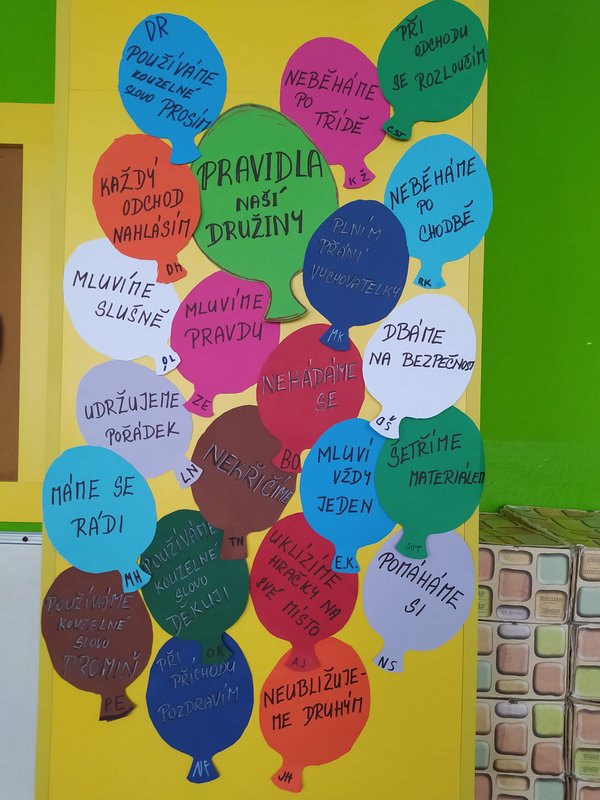 DR
POUŽÍVÁME
KOUZELNÉ
SLOVO PROSÍM
NEBĚHÁME
PO
TŘÍDĚ
KŽ
PŘI
ODCHODU
SE ROZLOUČÍM
ČŠT
PRAVIDLA
NAŠÍ
DRUŽINY
KAŽDÝ
ODCHOD
NAHLÁSÍM
DH
NEBĚHÁME
PO
CHODBĚ
RK
PLNÍM
PŘÁNÍ
VYCHOVATELKY
MK
MLUVÍME
SLUŠNĚ
MLUVÍME
PRAVDU
ZE
DBÁME
NA BEZPEČNOST
DŠ
NEHÁDÁME
SE
BO
UDRŽUJEME
POŘÁDEK
LN
NEKŘIČÍME
TN
MLUVÍ
VŽDY
JEDEN
E.K.
ŠETŘÍME
MATERIÁLEM
JOT
MÁME SE
RÁDI
MH
POUŽÍVÁME
KOUZELNÉ
SLOVO
DĚKUJI
OK
UKLÍZÍME
HRAČKY NA
SVÉ MÍSTO
AJ
POMÁHÁME
SI
NS
POUŽÍVÁME
KOUZELNÉ
SLOVO
PROMIŇ
RE
PŘI
PŘÍCHODU
POZDRAVÍM
NF
NEUBLIŽUJE-
ME DRUHÝM
JH